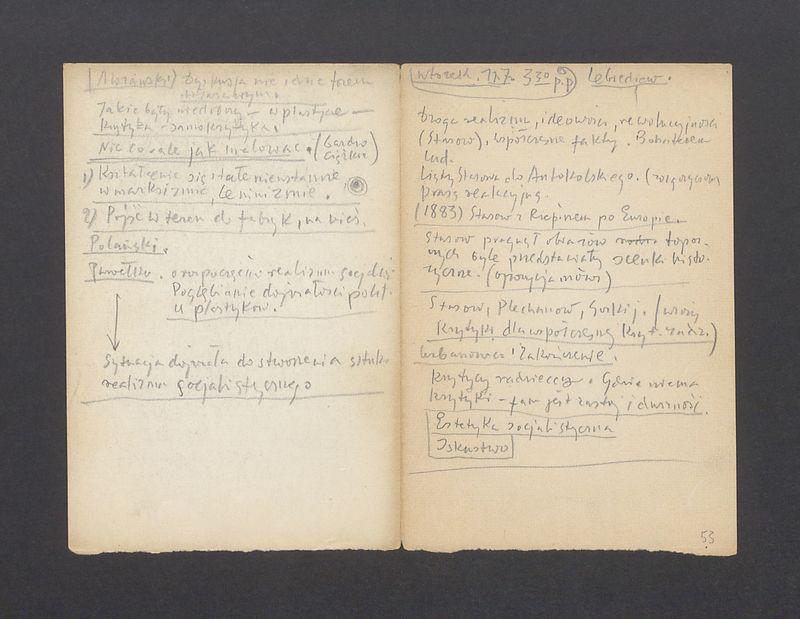 Dyskusja nie idzie torem
Jakie były niedobory – w plastyce –
krytyka i samokrytyka.
Nie co ale jak malować. (Bardzo
ciężkie)
1) Kształcenie się stałe nieustanne
w marksizmie, leninizmie.
2) Pójść w teren do fabryk, na wieś.
Polański.
Pawełko. o rozpoczęciu realizmu socjalist.
Pogłębianie dojrzałości polit.
u plastyków.
Sytuacja dojrzała do stworzenia sztuki
realizmu socjalistycznego
Wtorek. 17.7. 3 30 p.p. Lebiediew.
Droga realizmu, ideowości, rewolucyjności
(Stasow), współczesne fakty. Bohaterem
lud.
Listy Stasowa do Antokolskiego.
prasą reakcyjną.
(1883) Stasow z Riepinem po Europie.
Stasow pragnął obrazów
były przedstawiały scenki histo-
ryczne.
Stasow, Plechanow, Gorkij. (wzory
krytyki dla współczesnej kryt. radz.)
Urbanowicz: Zakończenie.
krytycy radzieccy. Gdzie nie ma
krytyki – tam jest zastój i
Estetyka socjalistyczna
Iskustwo
53